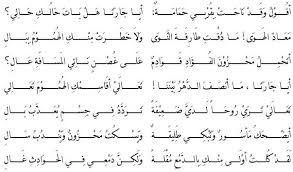 أَقُولُ وَقَدْ نَاحَتْ بِقُرْبِي حَمَامَةٌ: أَيَا جَارَتَا هَلْ بَاتَ حَالُكِ حَالِي؟
مَعَاذَ الهَوَى! مَا ذُقْتِ طَارِقَةَ النَّوَى وَلَا خَطَرَتْ مِنْكِ الهُمُومُ بِبَالِ
أَتَحْمِلُ مَحْزُونَ الفُؤَادِ قَوَادِمٌ عَلَى غُصْنٍ نَائِي المَسَافَةِ عَالِ
أَيَا جَارَتَا، مَا أَنْصَفَ الدَّهْرُ بَيْنَنَا! تَعَالَيْ أُقَاسِمْكِ الهُمُومَ تَعَالِي
تَعَالَيْ تَرَيْ رُوحًا لَدَيَّ ضَعِيفَةً تَرَدَّدُ فِي جِسْمٍ يُعَذَّبُ بَالِ
أَيَضْحَكُ مَأْسُورٌ وَتَبْكِي طَلِيقَةٌ وَيَسْكُتُ مَحْزُونٌ وَيَنْدُبُ سَالِ
لَقَدْ كُنْتُ أَوْلَى مِنْكِ بِالدَّمْعِ مُقْلَةً وَلَكِنَّ دَمْعِي فِي الحَوَادِثِ غَالِ